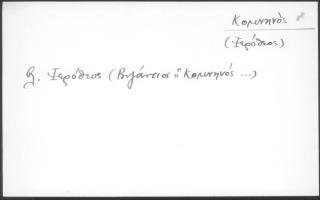 Κομνηνός
(Ιερόθεος)
βλ. Ιερόθεος (Βυζάντιος ὁ Κομνηνός ...)